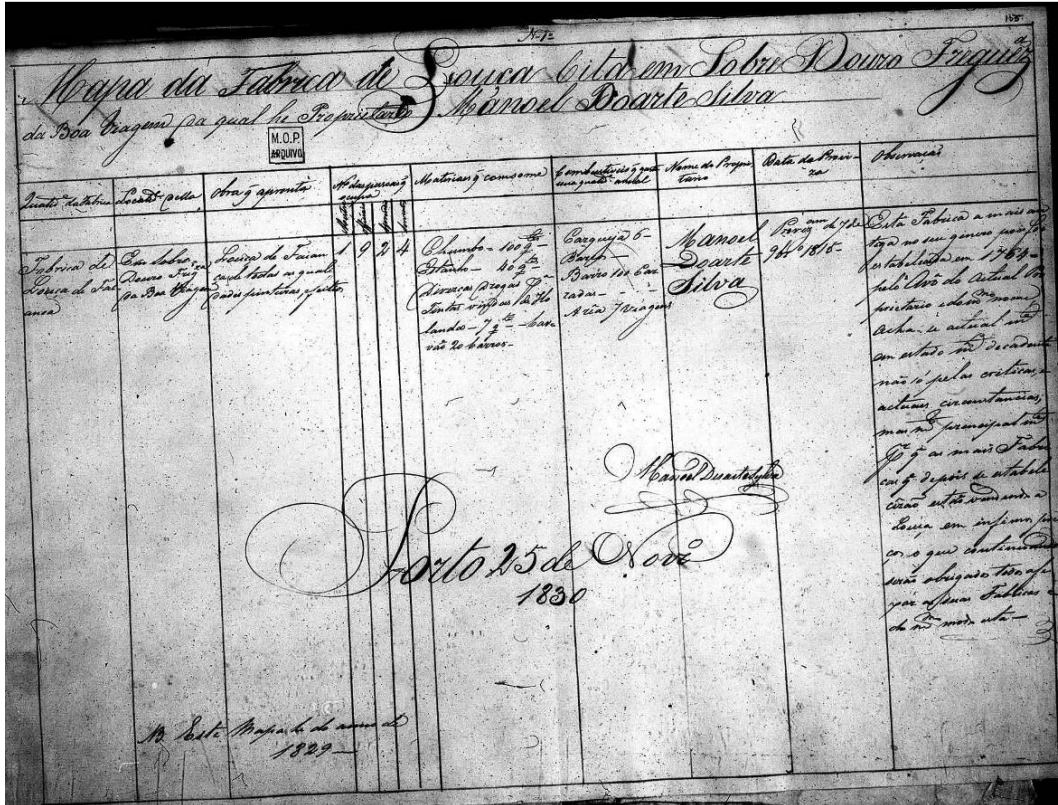 N.º 1º
165
Mapa da Fabrica de Louça Cita em Sobre Douro Freguezª
da Boa Viagem da qual he Proprietario Manoel Doarte Silva
M.O.P.
ARQUIVO
Qualid.e da Fabrica
Locald.e della
Obra q apronta
Nº das pessoas q
ocupa
Materias q comsome
Combustiveis q gasta
Nome do Propri-
tario
Data da Provi-
za
Observações
Fabrica de
Louca de Fai
anca
Em Sobre
Douro Freg.za
da Boa Viagem
Louça de Faian
ca de todas as quali
dades pinturas, e feitos
1 9 2 4
Chumbo - 100 q.tes
Estanho - 40 q.tes
Diverças drogas e
Tintas vindas da Ho
landa - 7 q.tes - Car-
vão 20 barros -
Carqueja 6 -
Barcos -
Barro 100 Car
radas -
Aria 7 Viagens
Manoel
Doarte
Silva
Proviz.am de 7 de
9br.º 1815 -
Esta Fabrica a mais an
tiga no seu genero foi
estabalecida em 1764 -
pelo Avô do Actual Pro
prietario e do m.mo nome
Acha-se actual m.te
em estado m.to decadente
não só pelas criticas, e
actuais, circunstancias,
mas m.to principal m.te
p.r q as mais Fabri
cas q depois se estabele
cerão estão vendendo a
Louça em infimos pre
ços o que continuando
serão obrigados todos a fe
xar as suas Fabricas e
do m.mo modo esta -
Manoel Duarte Sylva
Porto 25 de Novº
1830
NB Este Mapa he do anno de
1829 -